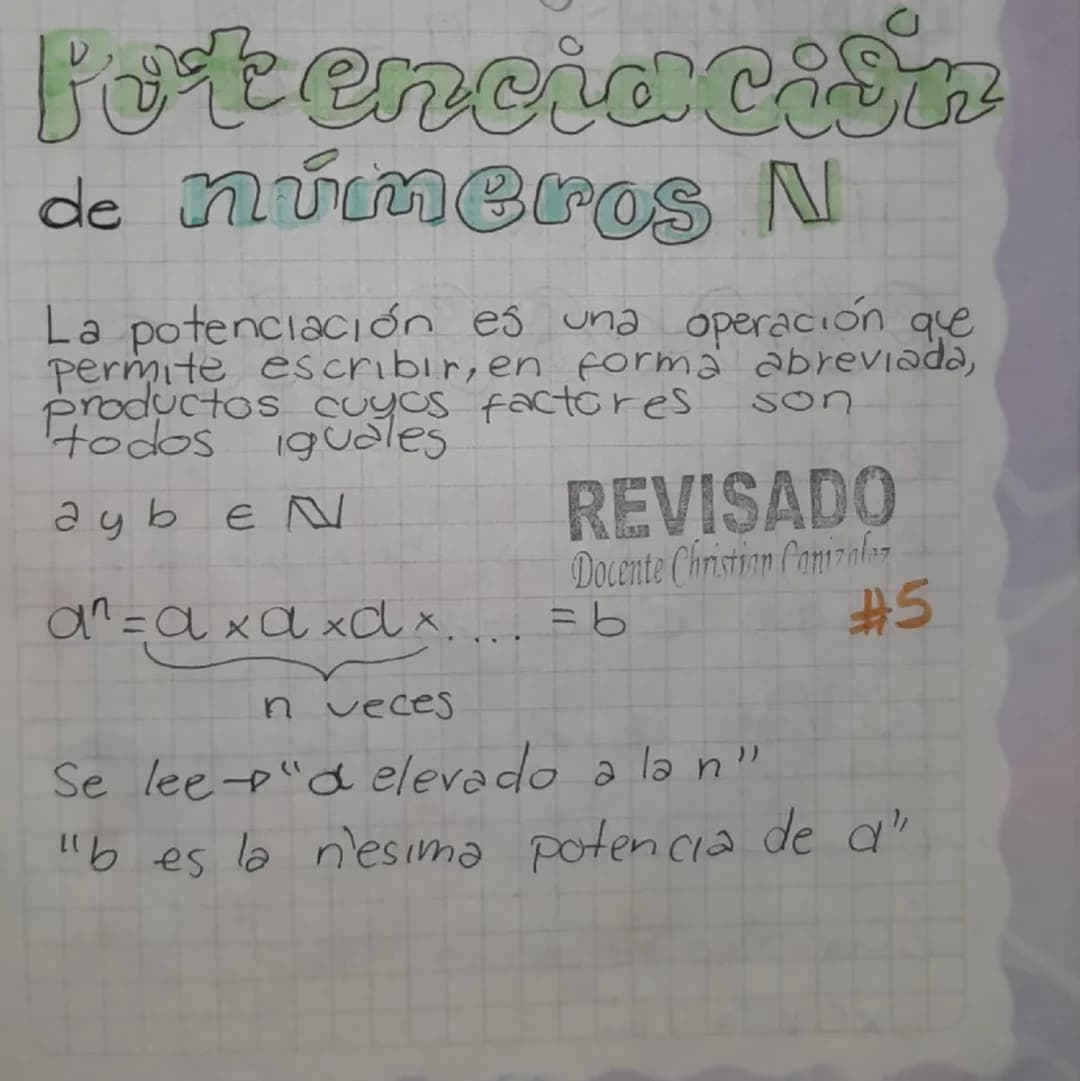 Potenciación
de números N
La potenciación es una operación que
permite escribir, en forma abreviada,
productos cuyos factores son
todos iguales
a y b ∈ ℕ
REVISADO
Docente Christian Canizalez
aⁿ = a x a x a x.... = b
#5
n veces
Se lee → "a elevado a la n"
"b es la n'esima potencia de a"